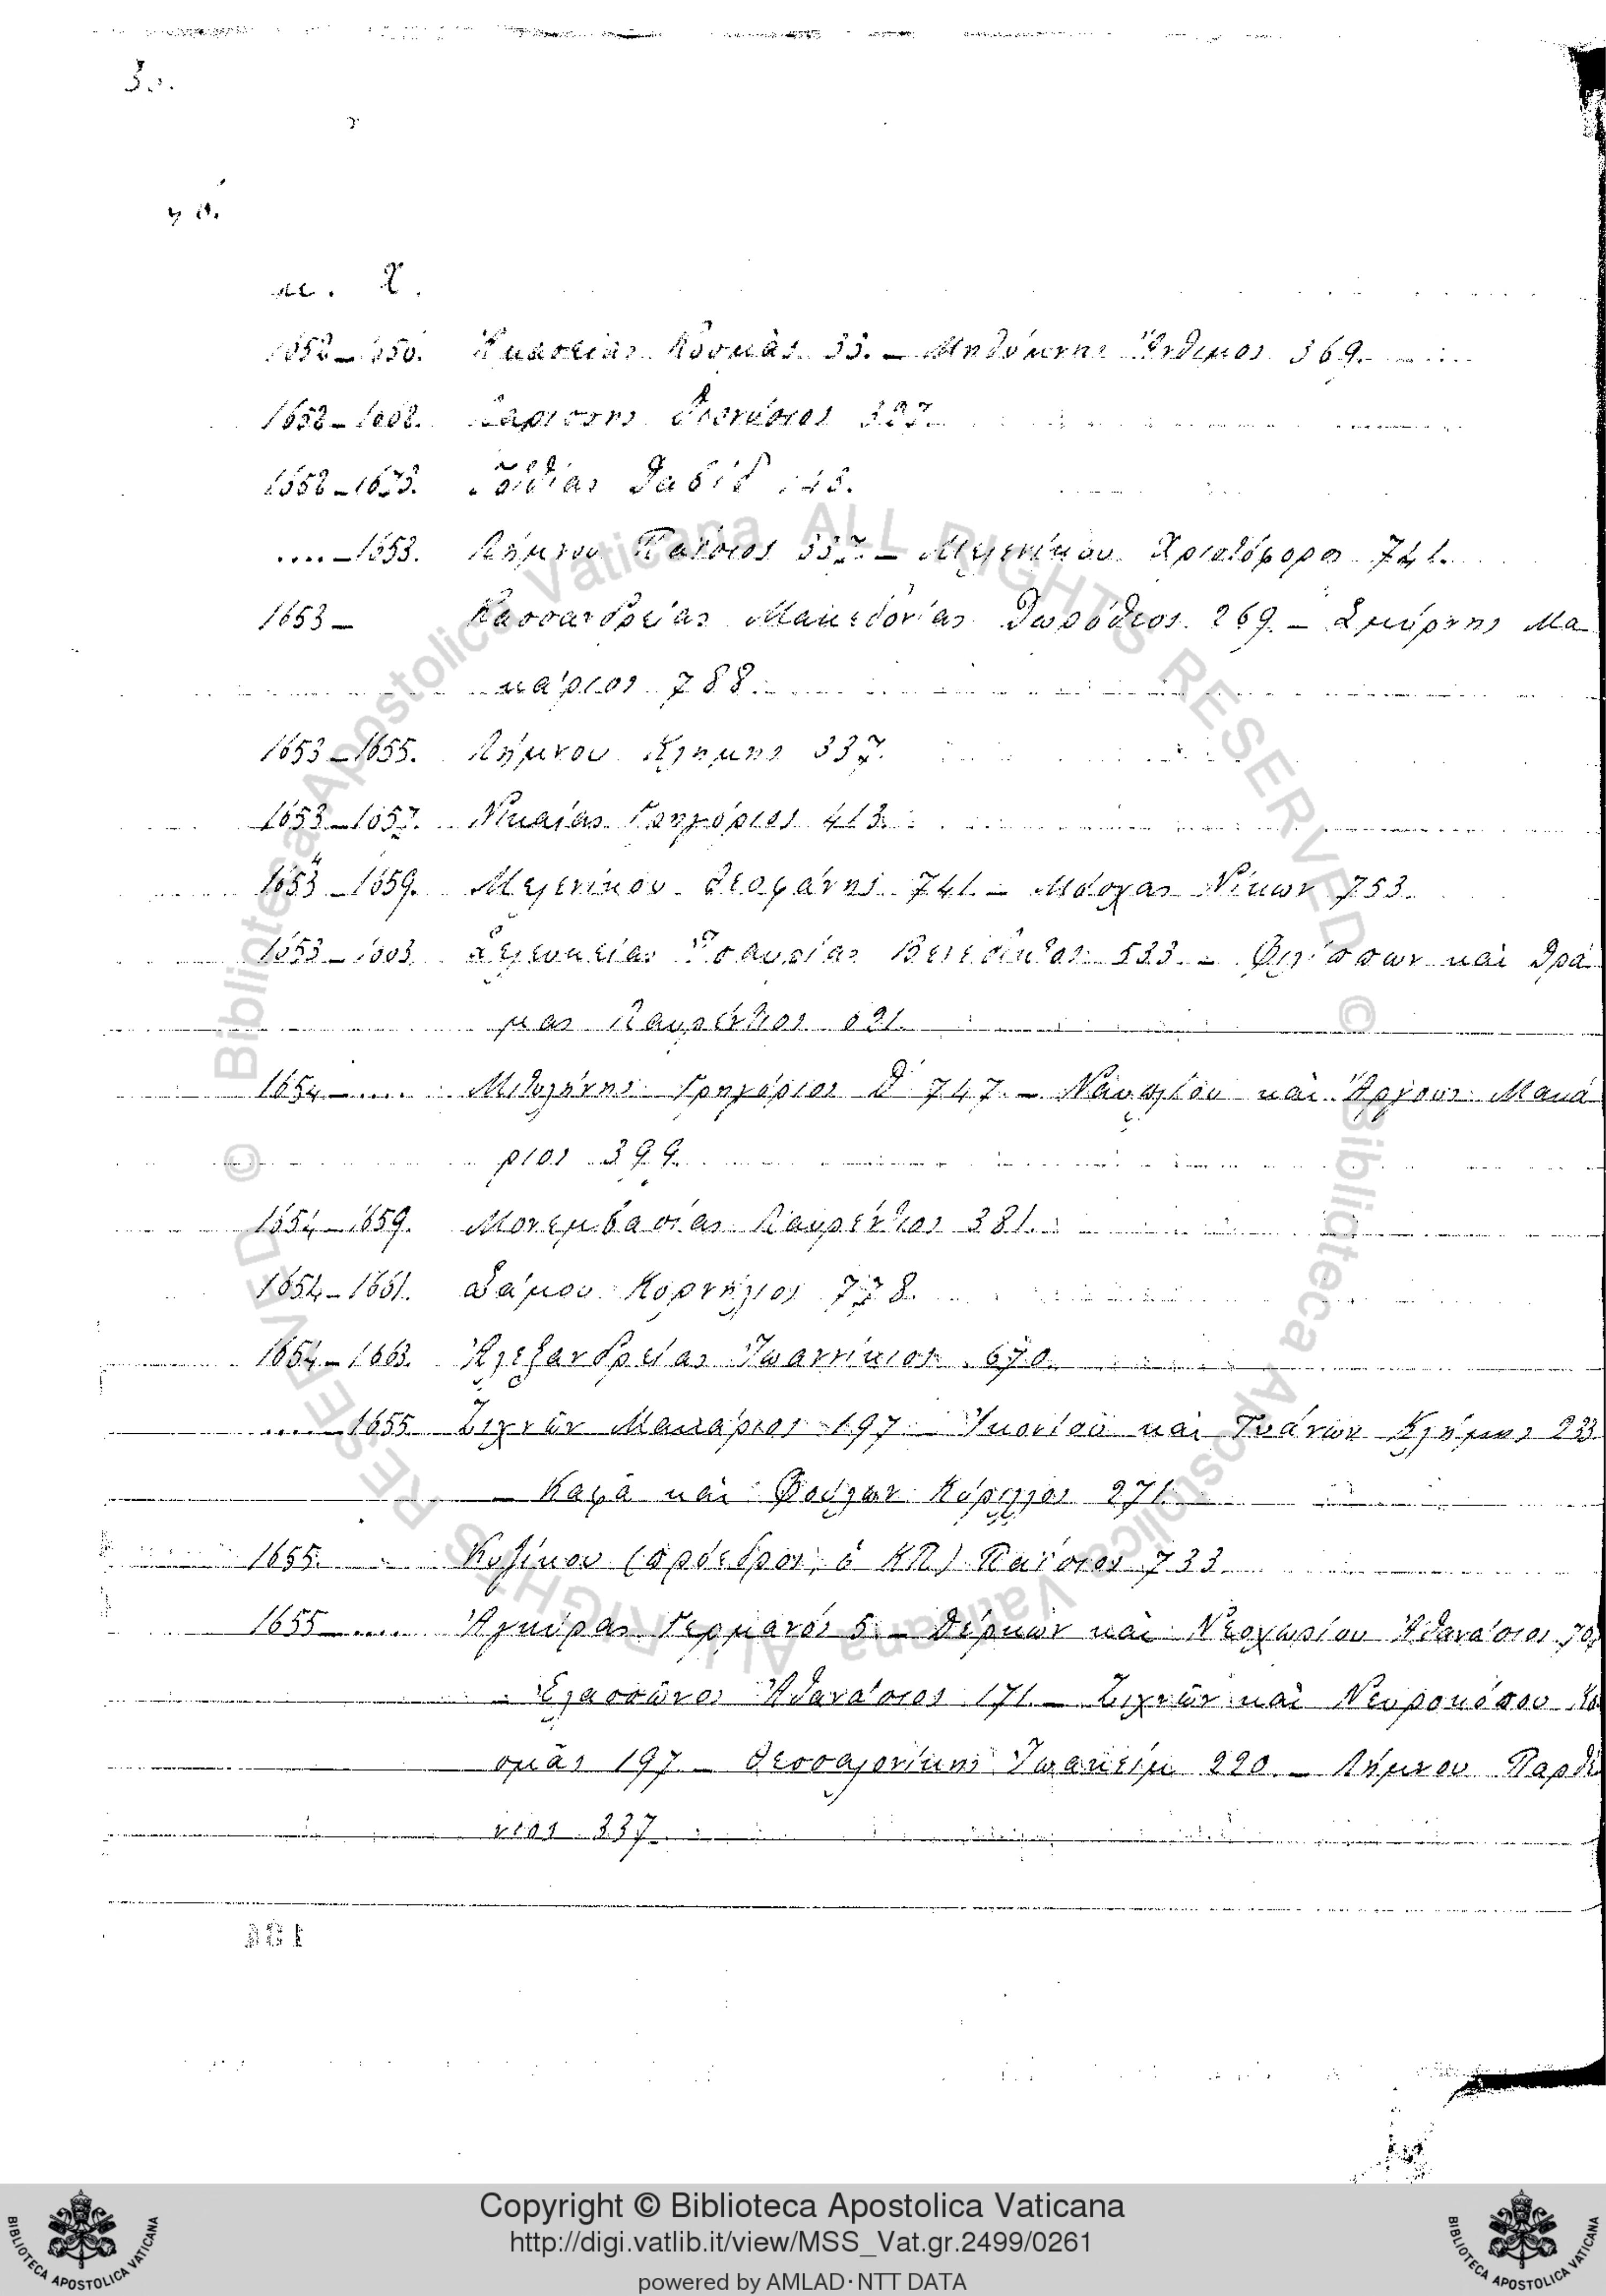 μ. Χ.
Ἀμασείας Κοσμᾶς 33. – Μηθύμνης Ἄνθιμος 369.
Λαρίσσης Διονύσιος 327
1652–1673. Δαβὶδ
....–1653. Λήμνου Παΐσιος 337 – Μελενίκου Χριστόφορος 741.
1653– Κασσανδρείας Μακεδονίας Δωρόθεος 269. – Σμύρνης Μα-
κάριος 788.
1653–1655. Λήμνου Κλήμης 337.
1653–1657. Νικαίας Γρηγόριος 413.
–1659. Μελενίκου Θεοφάνης 741. – Μόσχας Νίκων 753.
Σελευκείας Ἰσαυρίας Βενέδικτος 533. – Φιλίππων καὶ Δρά-
μας Λαυρέντιος
1654–.... Μιτυλήνης Γρηγόριος Δ΄ 747. – Ναυπλίου καὶ Ἄργους Μακά-
ριος 399.
1654–1659. Μονεμβασίας Λαυρέντιος 381.
1654–1661. Σάμου Κορνήλιος 778.
1654–1663. Ἀλεξανδρείας Ἰωαννίκιος 670.
....–1655 Ζιχνῶν Μακάριος 197 – Ἰκονίου καὶ Τυάνων Κλήμης 233
– Καφᾶ καὶ Φούλων Κύριλλος 271.
1655. Κυζίκου (πρόεδρος ὁ ΚΠ) Παΐσιος 733.
1655–.... Ἀγκύρας Γερμανός 5. – Δέρκων καὶ Νεοχωρίου Ἀθανάσιος
– Ἐλασσῶνος Ἀθανάσιος 171. – Ζιχνῶν καὶ Νευροκόπου Κο-
σμᾶς 197. – Θεσσαλονίκης Ἰωακείμ 220. – Λήμνου Παρθέ-
νιος 337.
Copyright © Biblioteca Apostolica Vaticana
http://digi.vatlib.it/view/MSS_Vat.gr.2499/0261
powered by AMLAD·NTT DATA